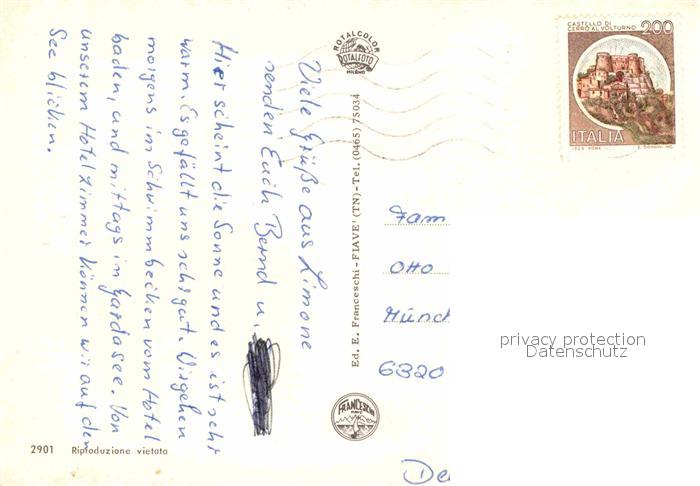 Viele Grüße aus Limone
senden Euch Bernd u.
Hier scheint die Sonne und es ist sehr
warm. Es gefällt uns sehr gut. Wir gehen
morgens im Schwimmbecken vom Hotel
baden, und mittags im Gardasee. Von
unserem Hotelzimmer können wir auf den
See blicken.
2901 Riproduzione vietata
ROTALCOLOR
ROTALFOTO
MILANO
Ed. E. Franceschi - FIAVE' (TN) - Tel. (0465) 75034
FRANCESCHI
FIAVE
CASTELLO DI
CERRO AL VOLTURNO 200
ITALIA
Fam
Otto
Münch
6320
privacy protection
Datenschutz